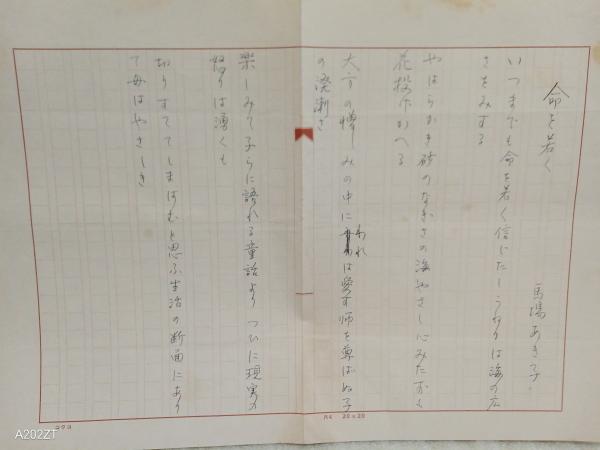 命を若く
馬場あき子
いつまでも命を若く信じたしうねりは海の広
さをみする
やはらかき砂のなぎさの海やさし心みたすも
花投げかへる
大方の憎しみの中にわれは愛す師を尊ばぬ子
の溌溂さ
楽しみて子らに語れる童話よりつひに現実の
怒りは湧くも
切りすててしまはむと思ふ生活の断面にあり
て母はやさしき
コクヨ
20×20
A202ZT